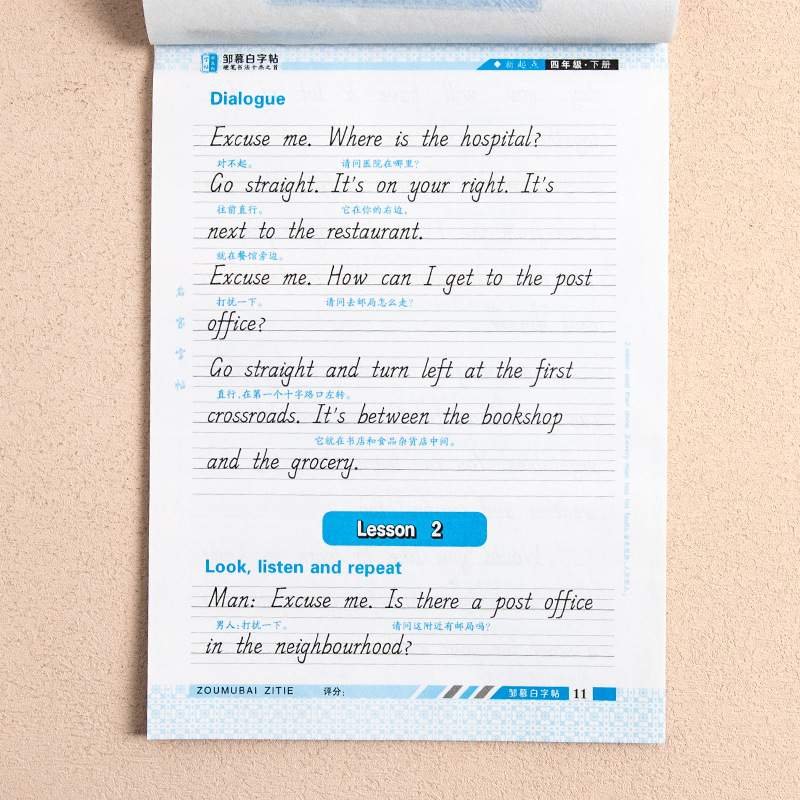 邹慕白字帖
硬笔书法十杰之首
◆新起点 四年级·下册
Dialogue
Excuse me. Where is the hospital?
对不起。 请问医院在哪里?
Go straight. It's on your right. It's
往前直行。 它在你的右边,
next to the restaurant.
就在餐馆旁边。
Excuse me. How can I get to the post
打扰一下。 请问去邮局怎么走?
office?
Go straight and turn left at the first
直行,在第一个十字路口左转。
crossroads. It's between the bookshop
它就在书店和食品杂货店中间。
and the grocery.
名家字帖
Lesson 2
Look, listen and repeat
Man: Excuse me. Is there a post office
男人:打扰一下。 请问这附近有邮局吗?
in the neighbourhood?
ZOUMUBAI ZITIE 评分:
邹慕白字帖 11